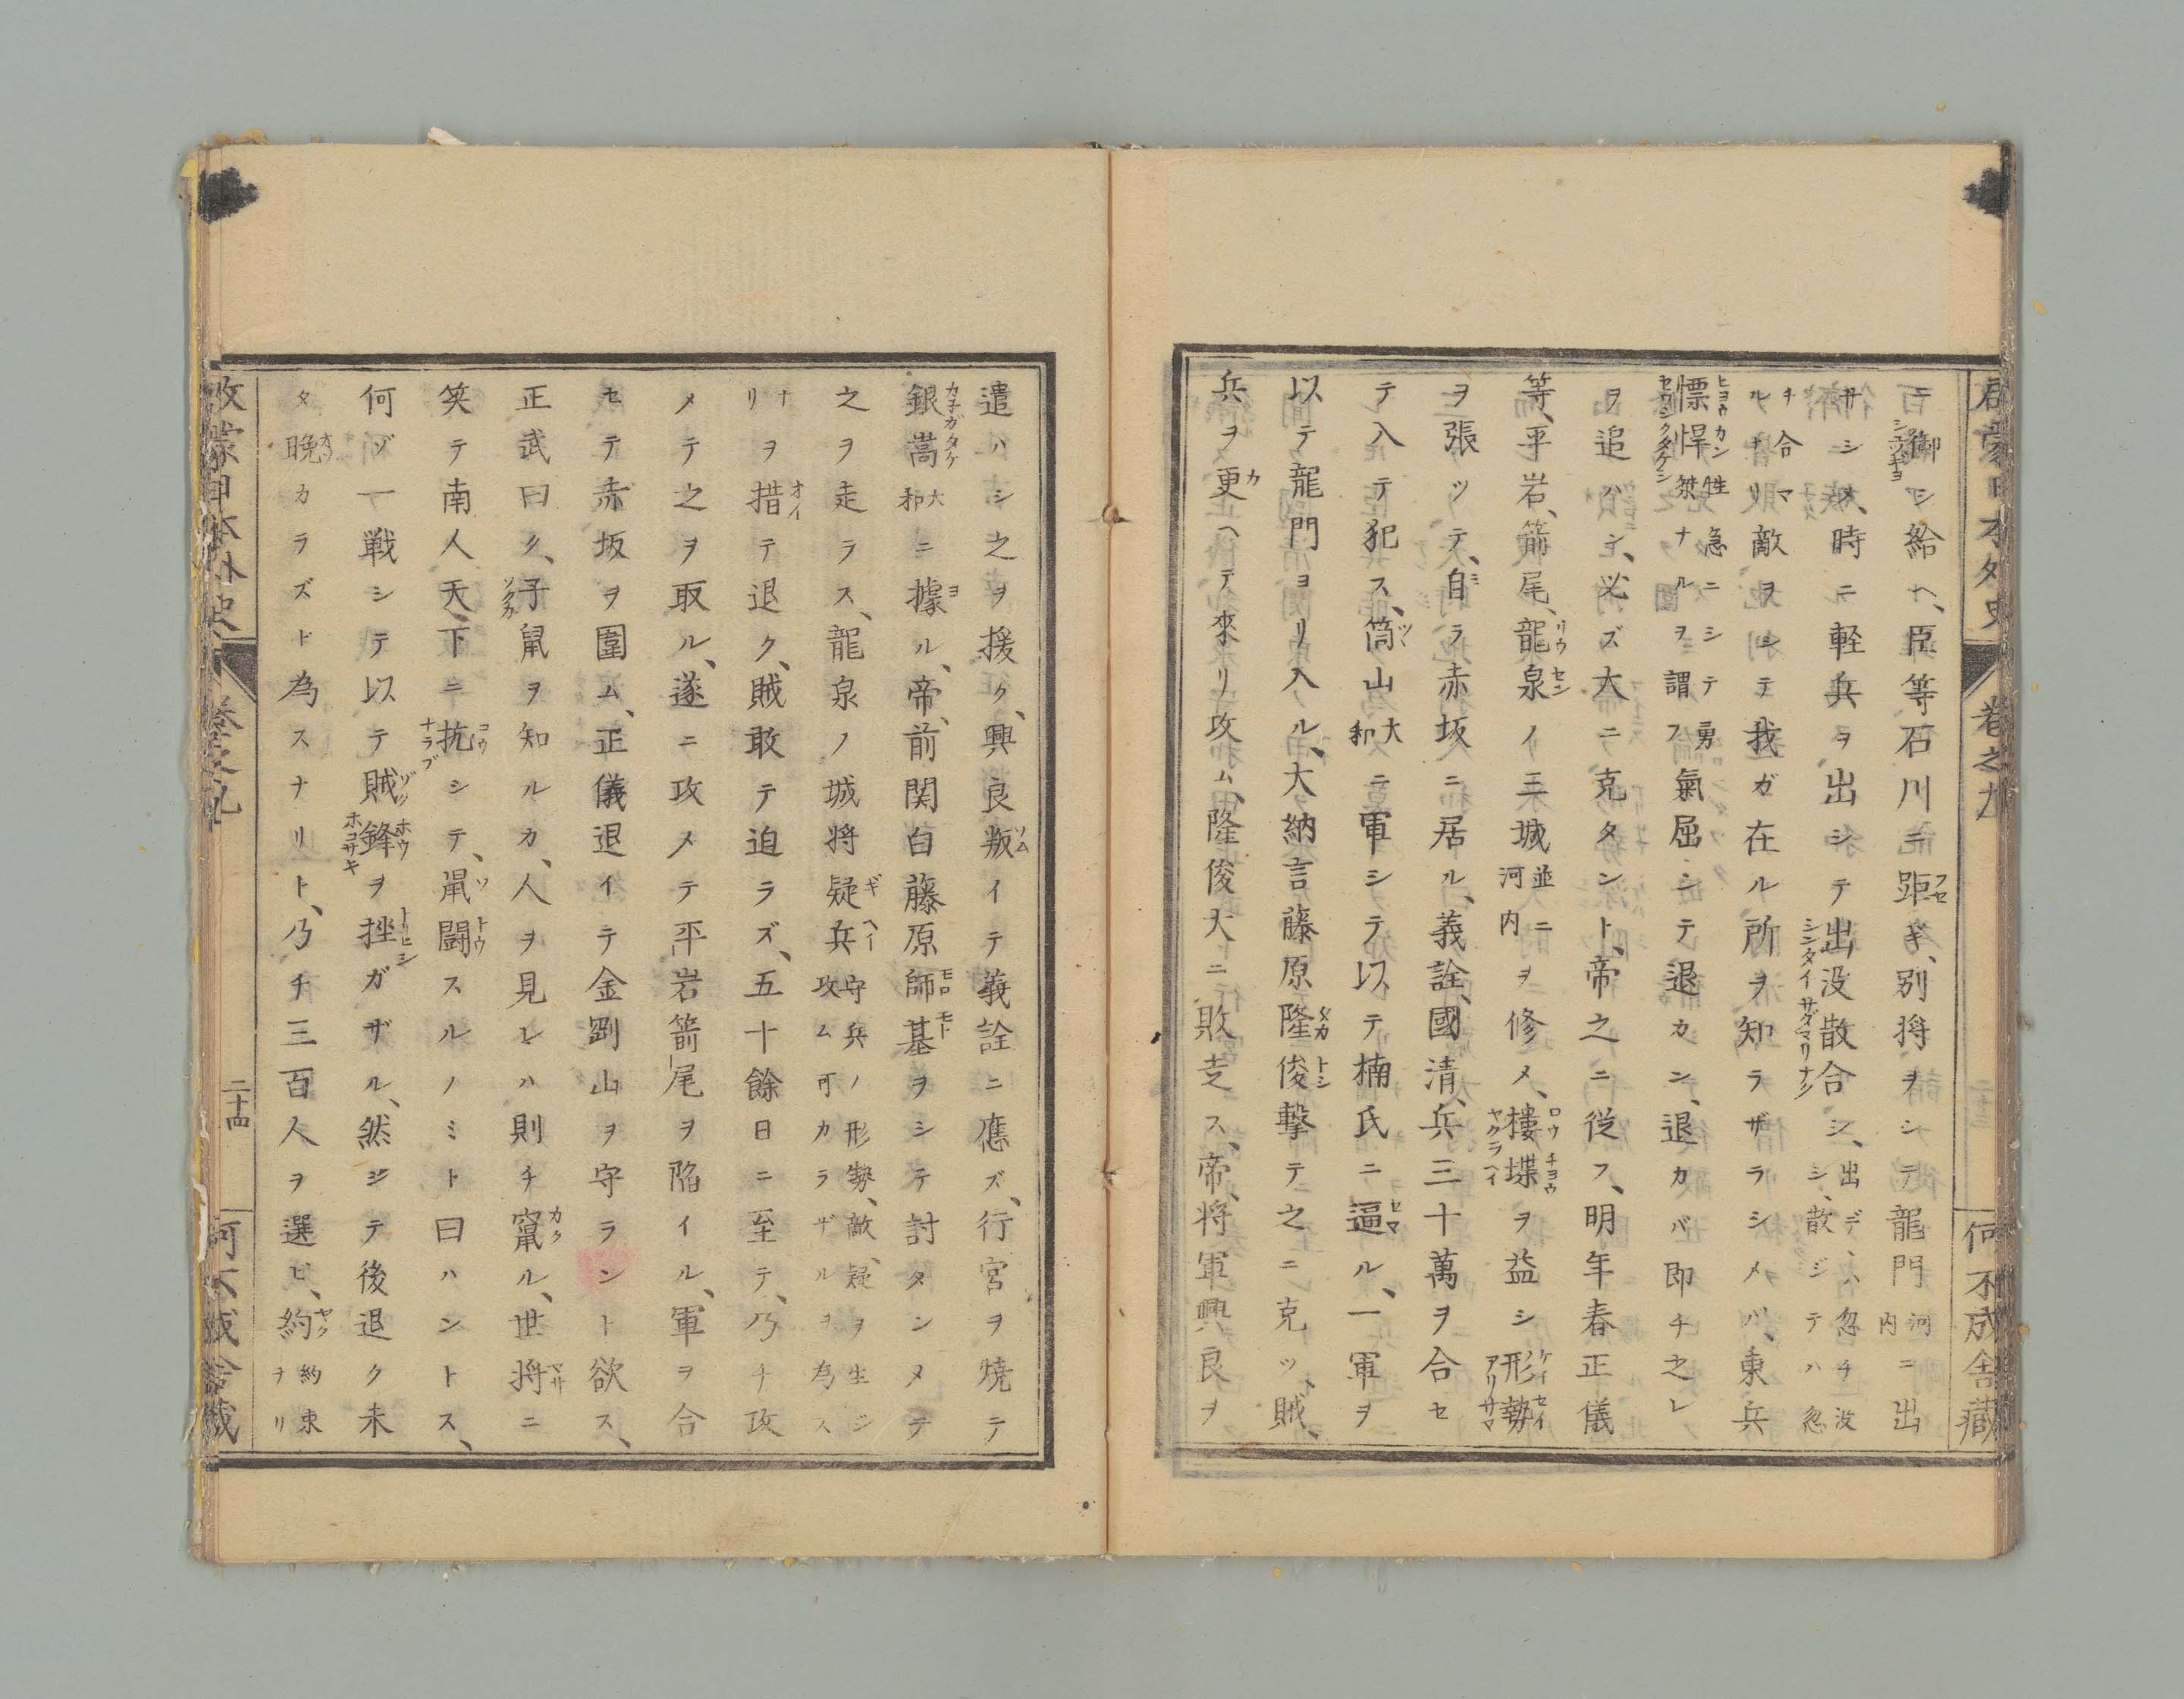 啓蒙日本外史 巻之九 何不成舎蔵
テ御シ給ヘ、臣等石川ニ距ギ、別将ヲシテ龍門河内ニ出
サシメ、時ニ軽兵ヲ出シテ出没散合シ、出デヽハ忽チ没シ、散ジテハ忽
チ合マルナリ敵ヲシテ我ガ在ル所ヲ知ラザラシメハ、東兵
慓悍性急ニシテ勇桀ナルヲ謂フ氣屈シテ退カン、退カバ即チ之レ
ヲ追ハヾ、必ズ大ニ克タント、帝之ニ従フ、明年春正儀
等、平岩、箭尾、龍泉ノ三城並ニ河内ヲ修メ、楼堞ヲ益シ形勢
ヲ張ツテ、自ラ赤坂ニ居ル、義詮、國清、兵三十萬ヲ合セ
テ入テ犯ス、筒山大和ニ軍シテ以テ楠氏ニ逼ル、一軍ヲ
以テ龍門ヨリ入ル、大納言藤原隆俊撃テ之ニ克ツ、賊、
兵ヲ更ヘテ來リ攻ム、隆俊大ニ敗走ス、帝、将軍興良ヲ
遣ハシ之ヲ援ク、興良叛イテ義詮ニ應ズ、行宮ヲ焼テ
銀嵩大和ニ據ル、帝、前関白藤原師基ヲシテ討タシメテ
之ヲ走ラス、龍泉ノ城将疑兵守兵ノ形勢、敵、疑ヲ生ジ攻ム可カラザルヲ為ス
ナリヲ措テ退ク、賊敢テ迫ラズ、五十餘日ニ至テ、乃チ攻
メテ之ヲ取ル、遂ニ攻メテ平岩箭尾ヲ陥イル、軍ヲ合
セテ赤坂ヲ圍ム、正儀退イテ金剛山ヲ守ラント欲ス、
正武曰ク、子鼠ヲ知ルカ、人ヲ見レハ則チ竄ル、世将ニ
笑テ南人天下ニ抗シテ、鼠闘スルノミト曰ハントス、
何ゾ一戦シテ以テ賊鋒ヲ挫ガザル、然シテ後退ク未
タ晩カラズト為スナリト、乃チ三百人ヲ選ビ、約約束ヲナリ
啓蒙日本外史 巻之九 二十四 何不成舎蔵